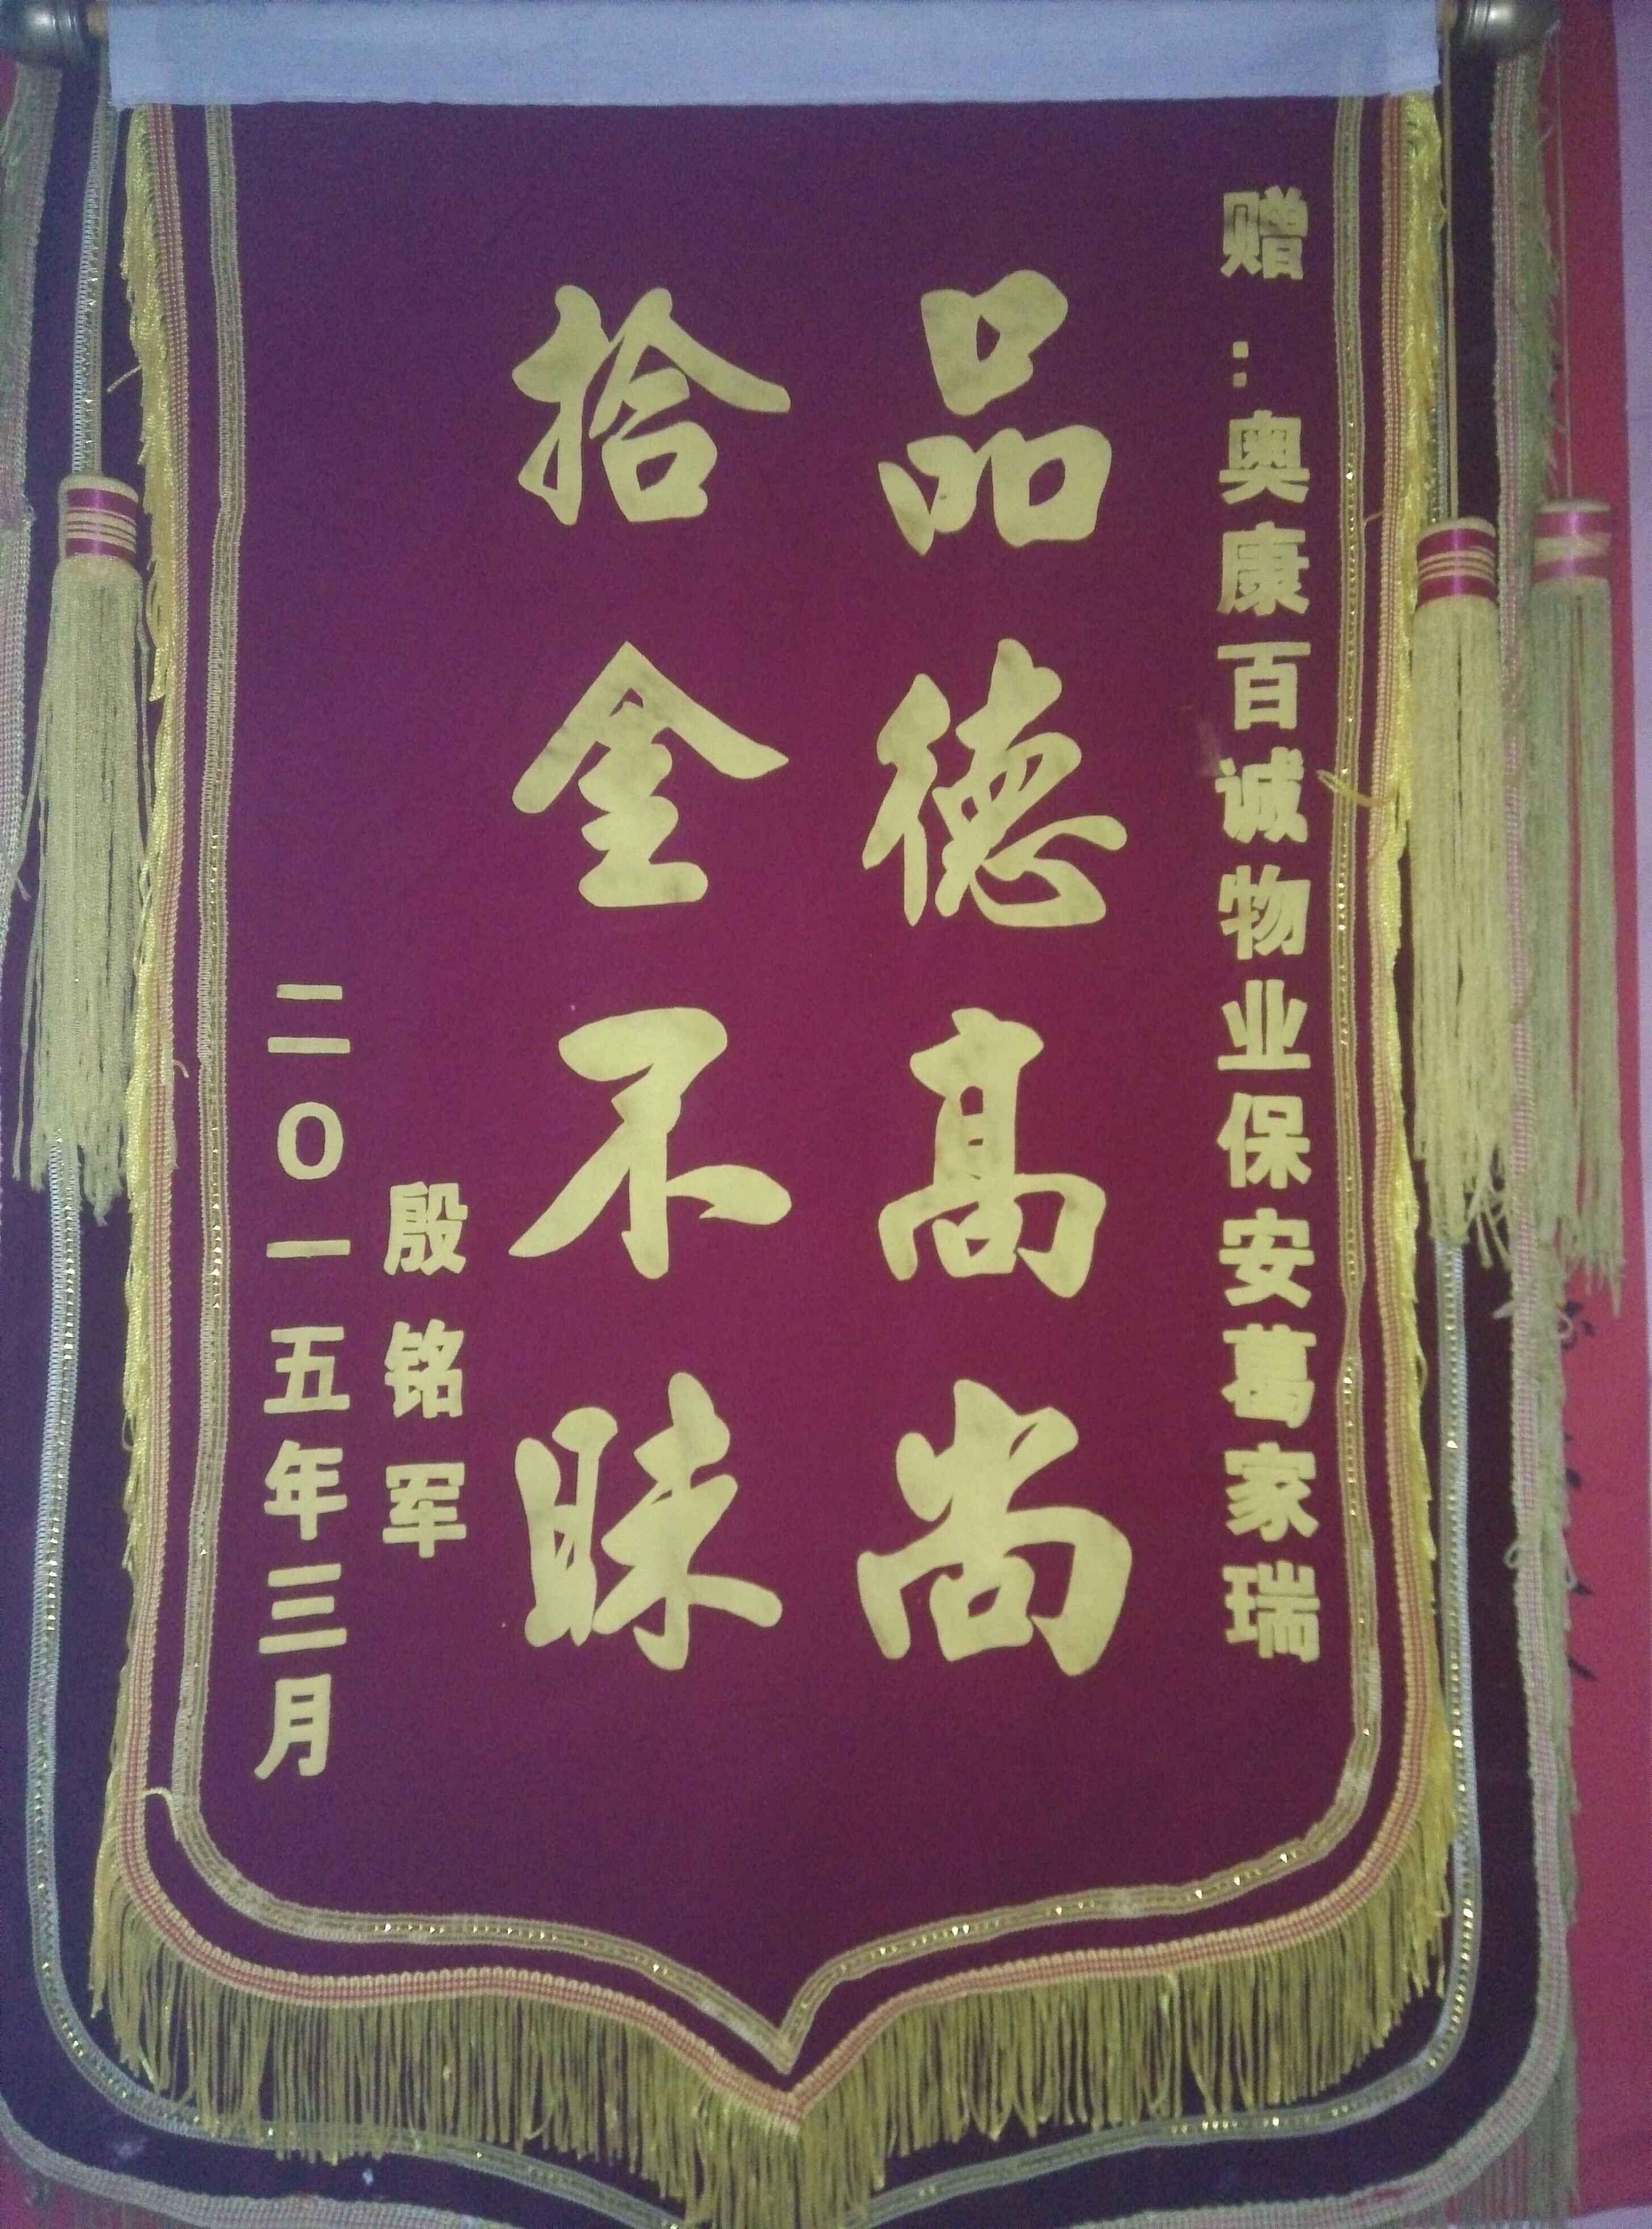 赠：奥康百诚物业保安葛家瑞
品德高尚
拾金不昧
殷铭军
二〇一五年三月